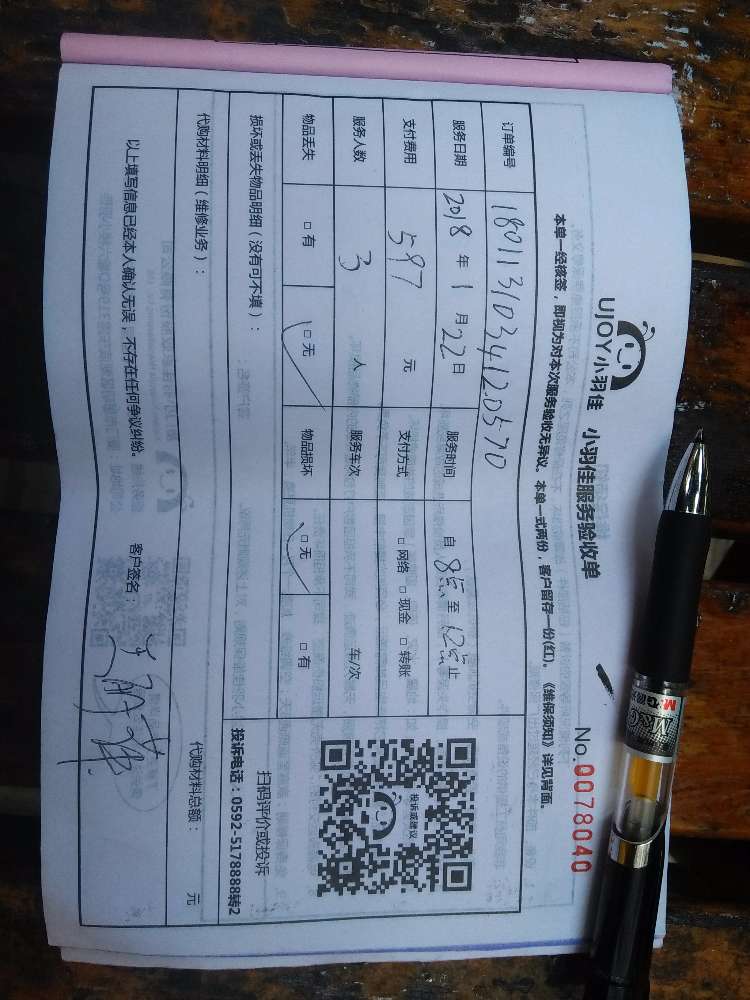 UJOY小羽佳 小羽佳服务验收单
No.0078040
本单一经核签，即视为对本次服务验收无异议。本单一式两份，客户留存一份(红)。《维保须知》详见背面。
订单编号 180113103412.0570
服务日期 2018年1月22日 服务时间 自8点至12点止
支付费用 597元 支付方式 □网络 □现金 □转账
服务人数 3人 服务车次 车/次
物品丢失 □有 □无 物品损坏 □无 □有
投诉或建议
扫码评价或投诉
投诉电话：0592-5178888转2
损坏或丢失物品明细（没有可不填）：
代购材料明细（维修业务）：
代购材料总额： 元
以上填写信息已经本人确认无误，不存在任何争议纠纷。 客户签名：
M&G